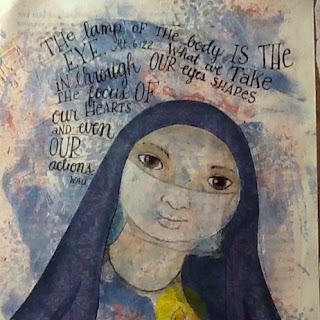 THE lamp OF THE body IS THE
EYE. Mt. 6:22 What we TAKE
IN through OUR eyes SHAPES
THE focus OF
our HEARTS
AND even
OUR
actions.